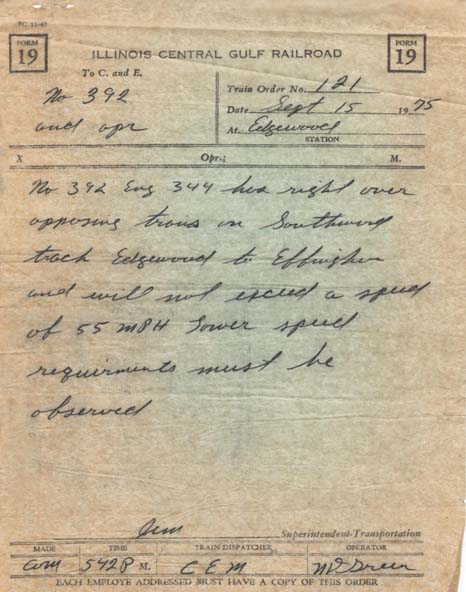 FORM
19
ILLINOIS CENTRAL GULF RAILROAD
FORM
19
To C. and E.
No 392
and opr
Train Order No. 121
Date Sept 15 1975
At Edgewood
STATION
X Opr.; M.
No. 392 Eng 344 has right over
opposing trains on Southward
track Edgewood to Effingham
and will not exceed a speed
of 55 MPH Lower speed
requirments must be
observed
Superintendent-Transportation
MADE TIME TRAIN DISPATCHER OPERATOR
com 542P M. C E M
EACH EMPLOYE ADDRESSED MUST HAVE A COPY OF THIS ORDER